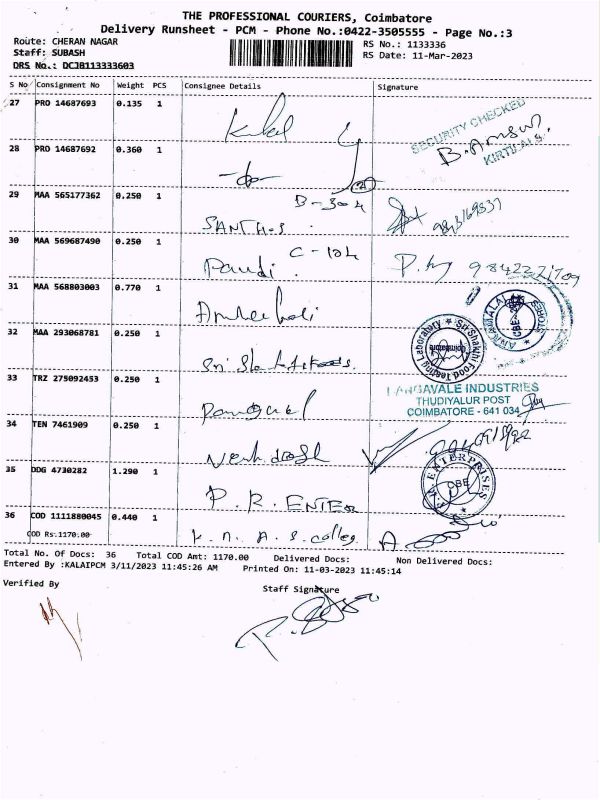 THE PROFESSIONAL COURIERS, Coimbatore
Delivery Runsheet - PCM - Phone No.:0422-3505555 - Page No.:3
Route: CHERAN NAGAR
Staff: SUBASH
DRS No.: DCJB113333603
RS No.: 1133336
RS Date: 11-Mar-2023
S No Consignment No Weight PCS Consignee Details Signature
27 PRO 14687693 0.135 1
SECURITY CHECKED
KIRTILALS.
28 PRO 14687692 0.360 1
29 MAA 565177362 0.250 1 B-304
SANTHOS
30 MAA 569687490 0.250 1 C-104
Pandi
31 MAA 568803003 0.770 1
ANNAMALAI STORES
CBE
32 MAA 293068781 0.250 1
Sri Shakthi Food Testing Laboratory
Coimbatore
33 TRZ 275092453 0.250 1
INDUSTRIES
THUDIYALUR POST
COIMBATORE - 641 034
34 TEN 7461909 0.250 1
35 DDG 4730282 1.290 1
P. R. ENTER
ENTERPRISES
CBE
36 COD 1111880045 0.440 1
COD Rs.1170.00
K. N. A. S. colleg
Total No. Of Docs: 36 Total COD Amt: 1170.00 Delivered Docs: Non Delivered Docs:
Entered By :KALAIPCM 3/11/2023 11:45:26 AM Printed On: 11-03-2023 11:45:14
Verified By
Staff Signature